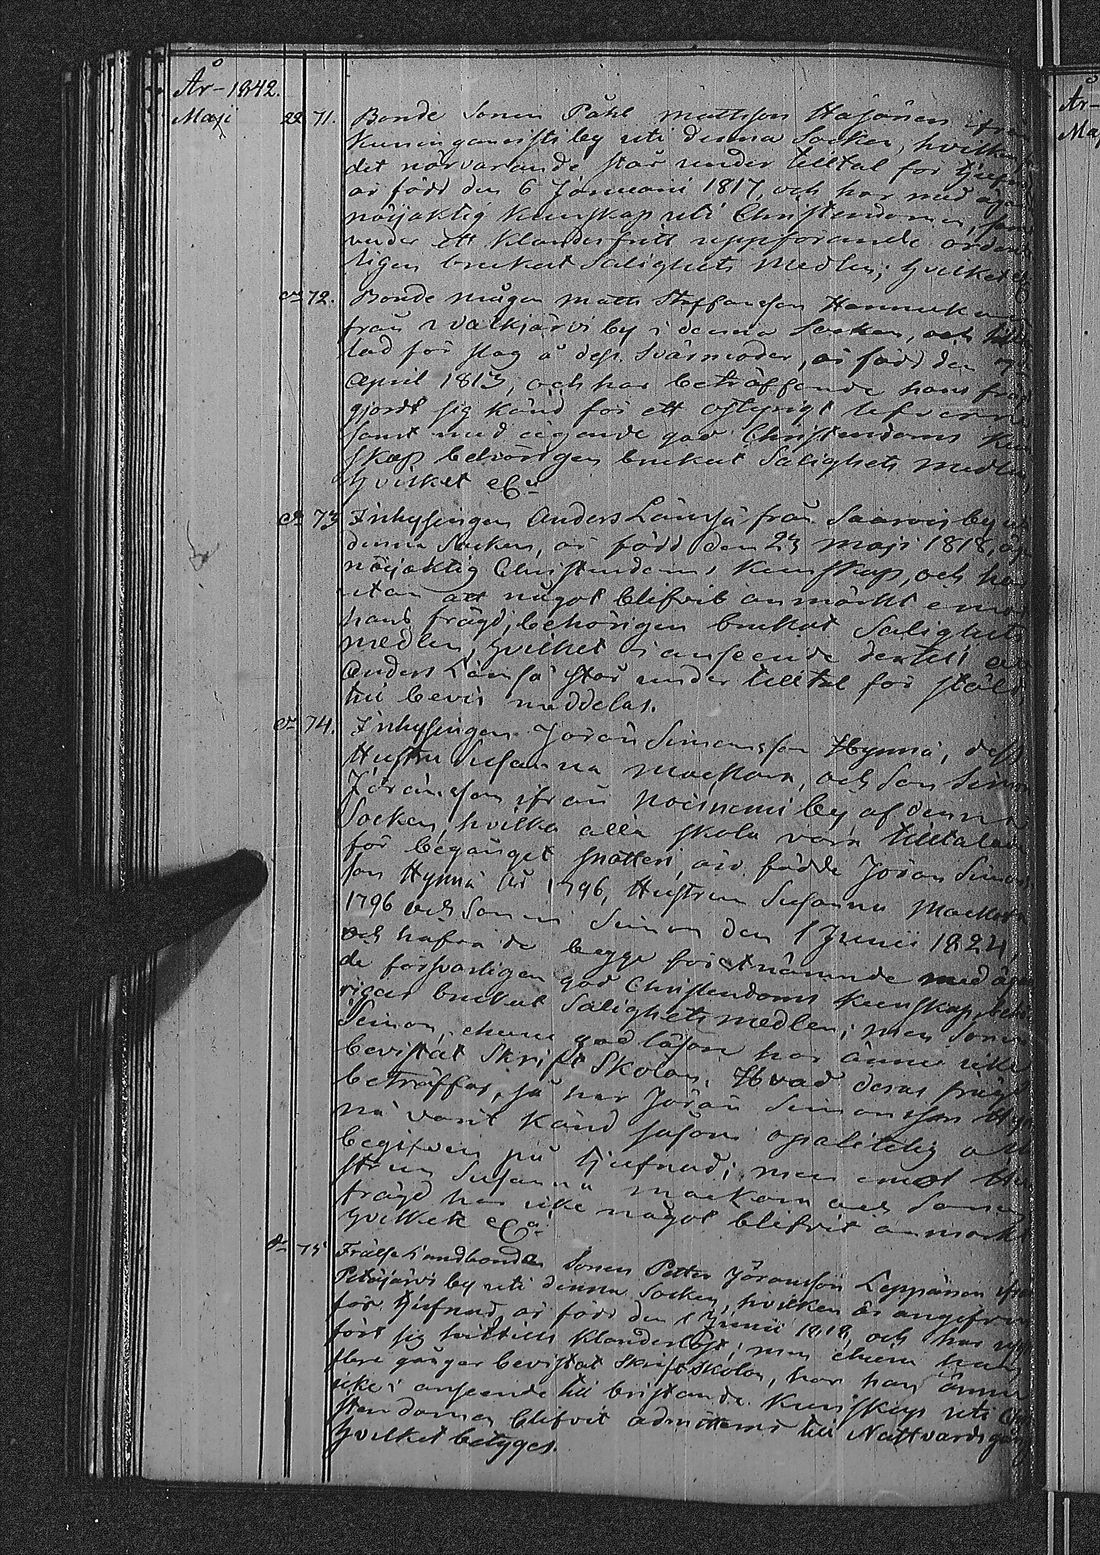 År 1842.
Maji 22 71. Bonde Sonen Påhl Mattsson Hasönen ifrån
Kuninganristi by uti denna Socken, hvilken
det närvarande står under tilltal för tjufnad
är född den 6 Januarii 1817 och har med ägan
nöijaktig kunskap uti Christendomen, sam
under ett klanderfritt uppförande orden
ligen brukat Salighets Medlen; hvilket &
d:o 72. Bonde mågen Matts Staffansson Hannuka
från Valkjärvi by i denna Socken, och tillta
lad för slag å dess Svärmoder, är född den
April 1813, och har beträffande hans frägd
gjordt sig känd för ett ostyrigt lefverne
samt med ägande god Christendoms kun
skap behörigen brukat Salighets medlen
hvilket &c:a
d:o 73 Inhysingen Anders Länsä från Saarois by i
denna Socken, är född den 23 Maji 1818, äger
nöijaktig Christendoms kunskap, och har
utan att något blifvit anmärkt emot
hans frägd, behörigen brukat Salighets
medlen, hvilket i anseende dertill att
Anders Länsä står under tilltal för stöld
till bevis meddelas.
d:o 74. Inhysingen Jöran Simonsson Hynnä, dess
Hustru Susanna Mackara, och Son Simon
Jöransson ifrån Noisniemi by af denna
Socken, hvilka alla skola vara tilltalade
för begånget snatteri, äro födde Jöran Simons
son Hynnä år 1796, Hustrun Susanna Mackara
1796 och Sonen Simon den 1 Junii 1824,
och hafva de begge förstnämnde med ägan
de försvarligen god Christendoms kunskap, behö
rigen brukat Salighets medlen; men Sonen
Simon, ehuru god läsare har ännu icke
bevistat Skrift Skolan. Hvad deras frägd
beträffar, så har Jöran Simonsson Hyn
nä varit känd såsom opålitelig och
begifven på tjufnad; men emot Hu
strun Susanna Mackara och Sonens
frägd har icke något blifvit anmärkt
hvilket &c:a
d:o 75 Frälse Landbonde Sonen Petter Jöransson Leppänen ifrån
Petäjärvi by uti denna Socken, hvilken är angifven
för tjufnad, är född den 1 Junii 1818, och har upp
fört sig hittills klanderlöst; men ehuru han
flere gånger bevistat Skrift Skolan, har han ännu
icke i anseende till bristande kunskap uti Chri
stendomen blifvit admitterad till Nattvards gång
hvilket betyges.
År
Maj